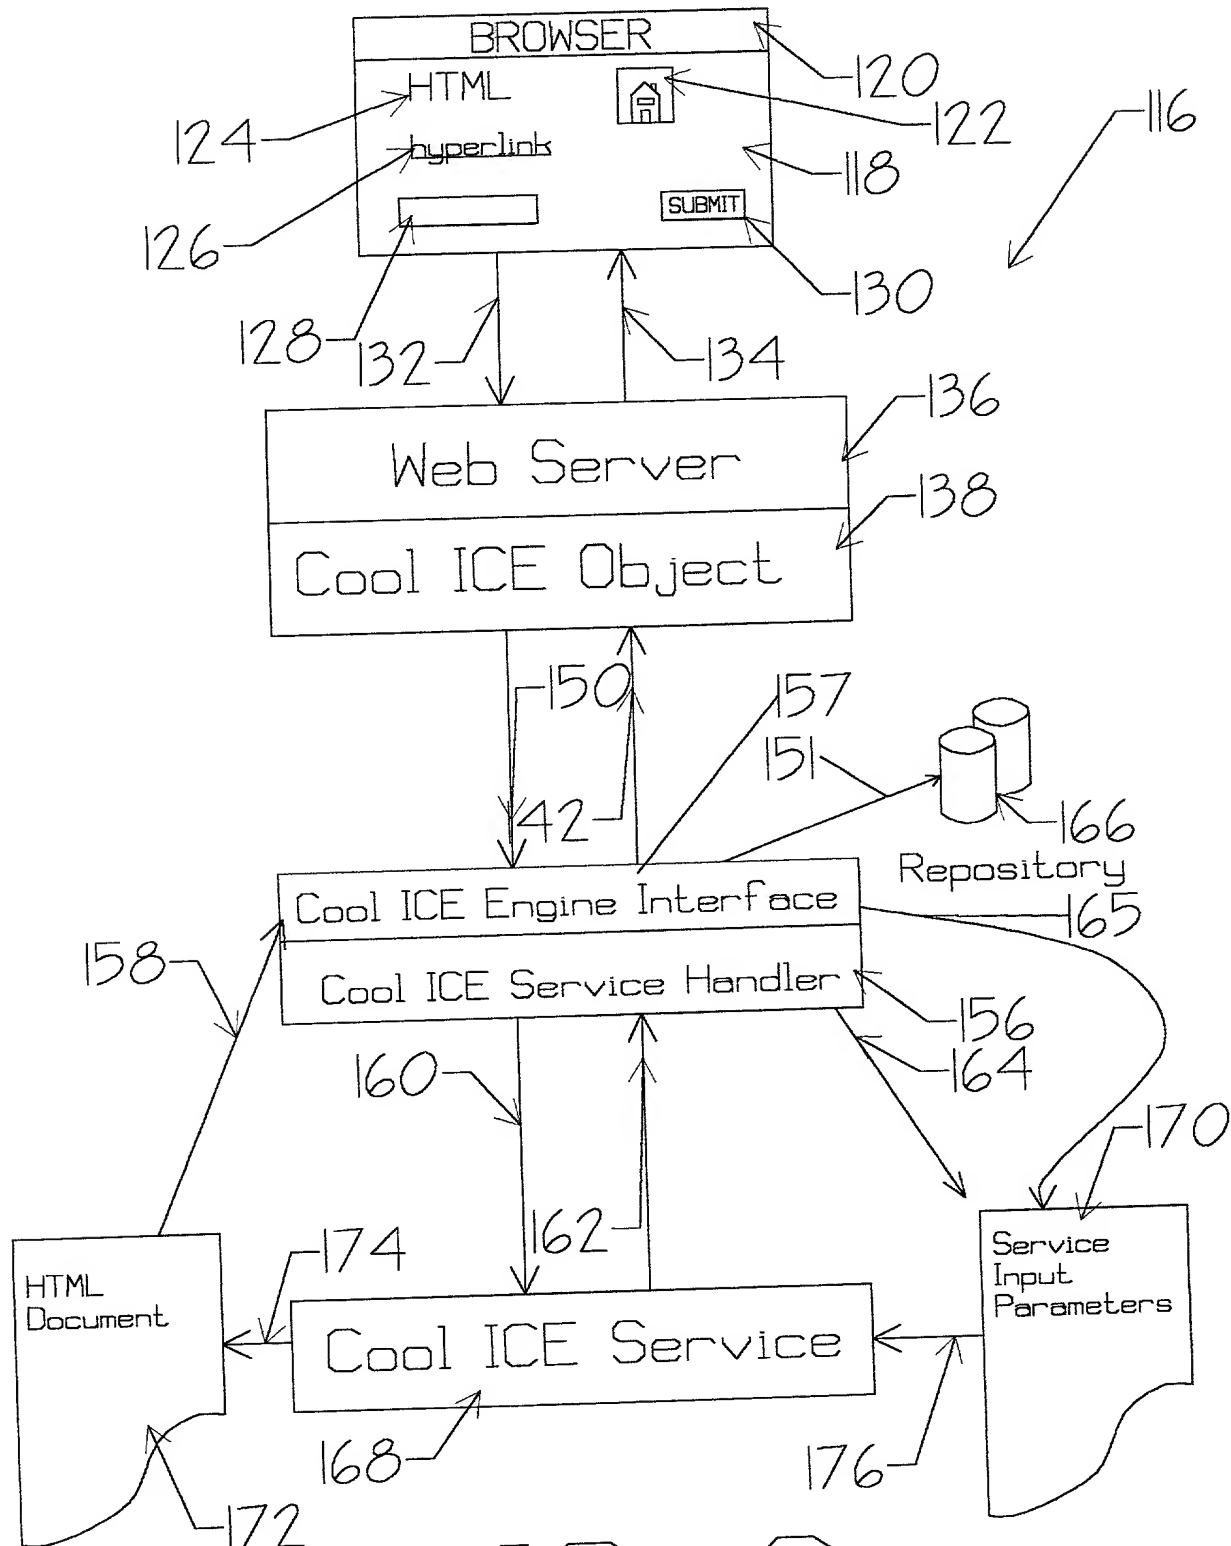 BROWSER
HTML
hyperlink
SUBMIT
120
122
116
124
118
126
130
128
132
134
136
Web Server
138
Cool ICE Object
150
157
151
142
166
Repository
Cool ICE Engine Interface
165
158
Cool ICE Service Handler
156
160
164
170
162
174
HTML
Document
Service
Input
Parameters
Cool ICE Service
168
176
172